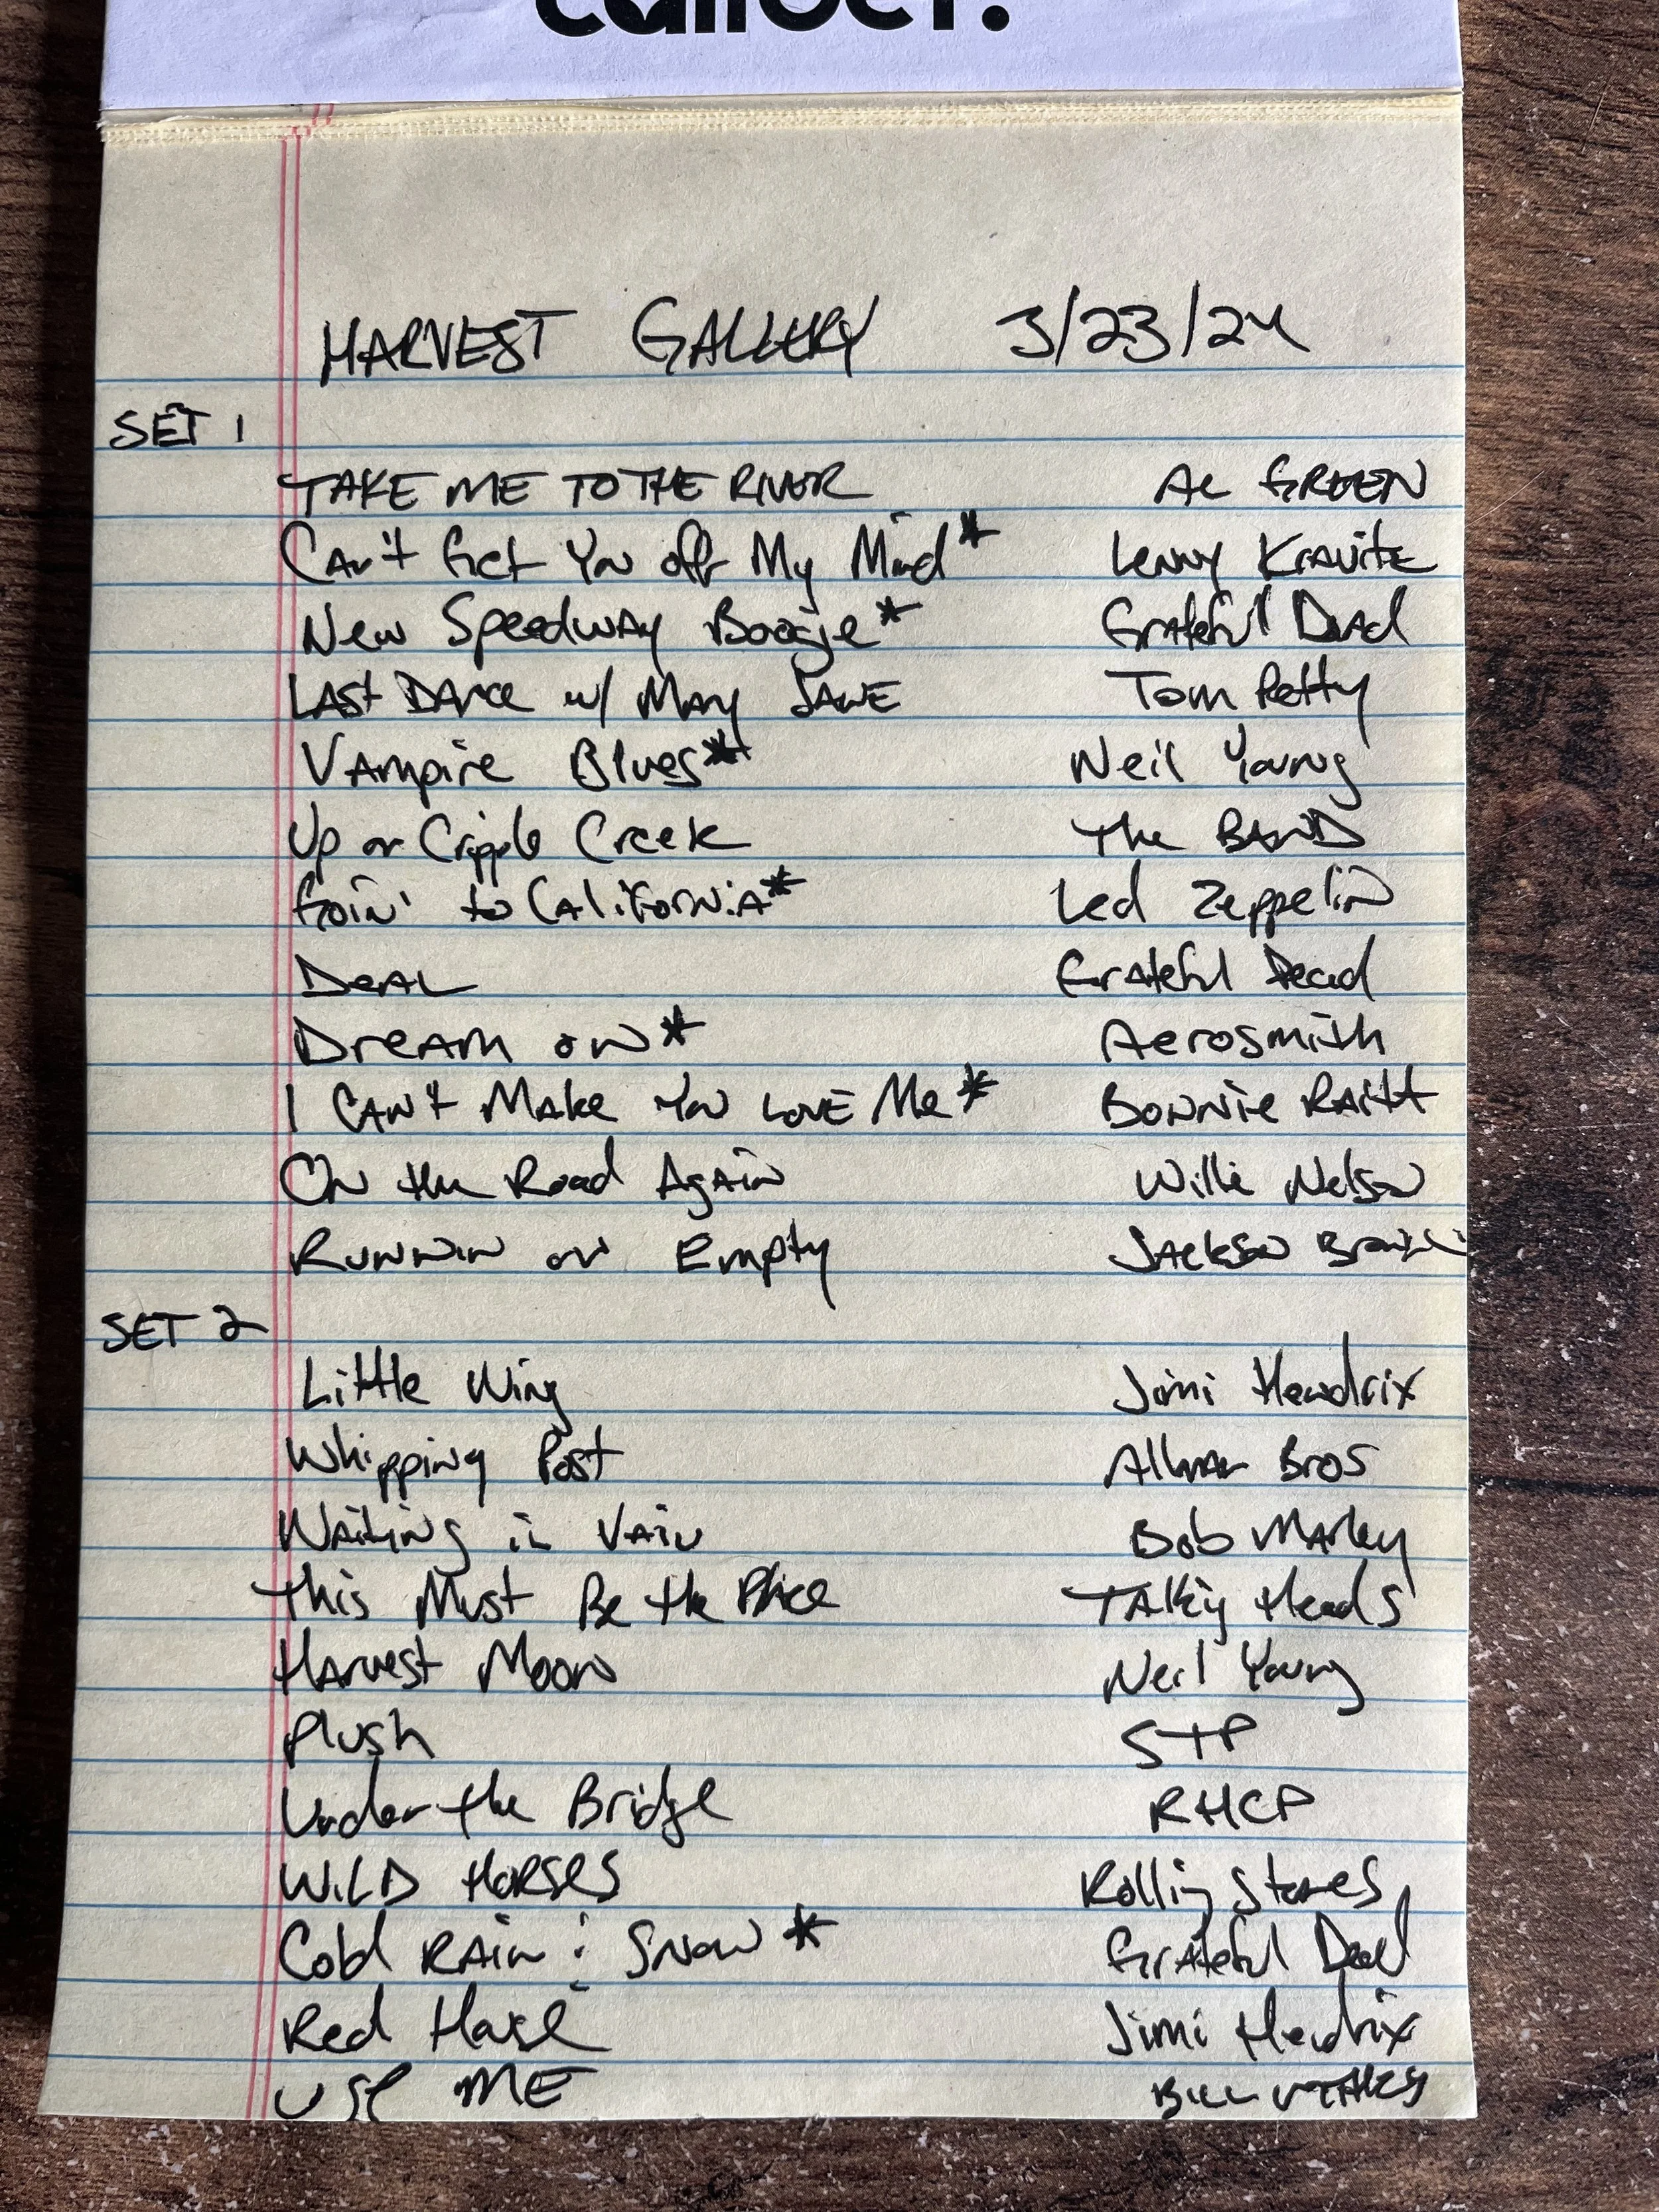 HARVEST GALLERY 3/23/24
SET 1
TAKE ME TO THE RIVER AL GREEN
Can't Get You off My Mind* Lenny Kravitz
New Speedway Boogie* Grateful Dead
LAST DANCE w/ MARY JANE Tom Petty
Vampire Blues* Neil Young
Up on Cripple Creek The BAND
Goin' to California* Led Zeppelin
DEAL Grateful Dead
DREAM ON* Aerosmith
I CAN'T Make You LOVE Me* Bonnie Raitt
On the Road Again Willie Nelson
Runnin on Empty Jackson
SET 2
Little Wing Jimi Hendrix
Whipping Post Allman Bros
Waiting in Vain Bob Marley
This Must Be the Place Talking Heads
Harvest Moon Neil Young
Plush STP
Under the Bridge RHCP
WILD HORSES Rolling Stones
Cold RAIN & Snow * Grateful Dead
Red House Jimi Hendrix
USE ME BILL